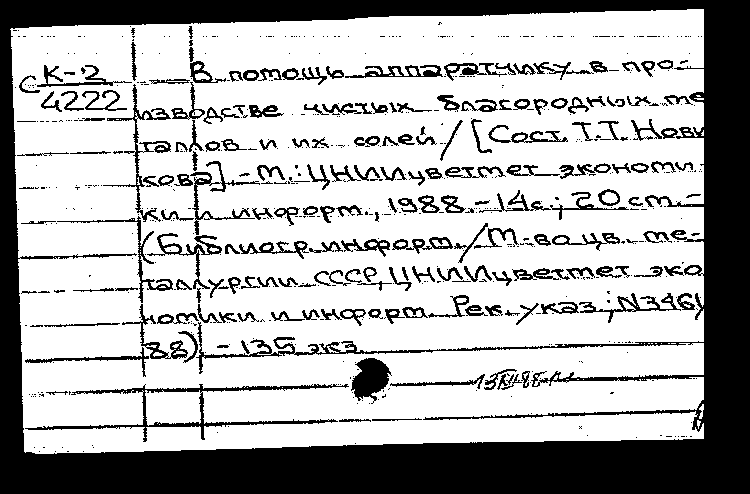 С К-2
4222
В помощь аппаратчику в про-
изводстве чистых благородных ме
таллов и их солей / [Сост. Т.Т. Нови
кова]. - М.: ЦНИИцветмет экономи-
ки и информ., 1988. - 14с.; 20 см. -
(Библиогр. информ. / М-во цв. ме-
таллургии СССР, ЦНИИцветмет эко
номики и информ. Рек. указ.; N346/
88) - 135 экз.